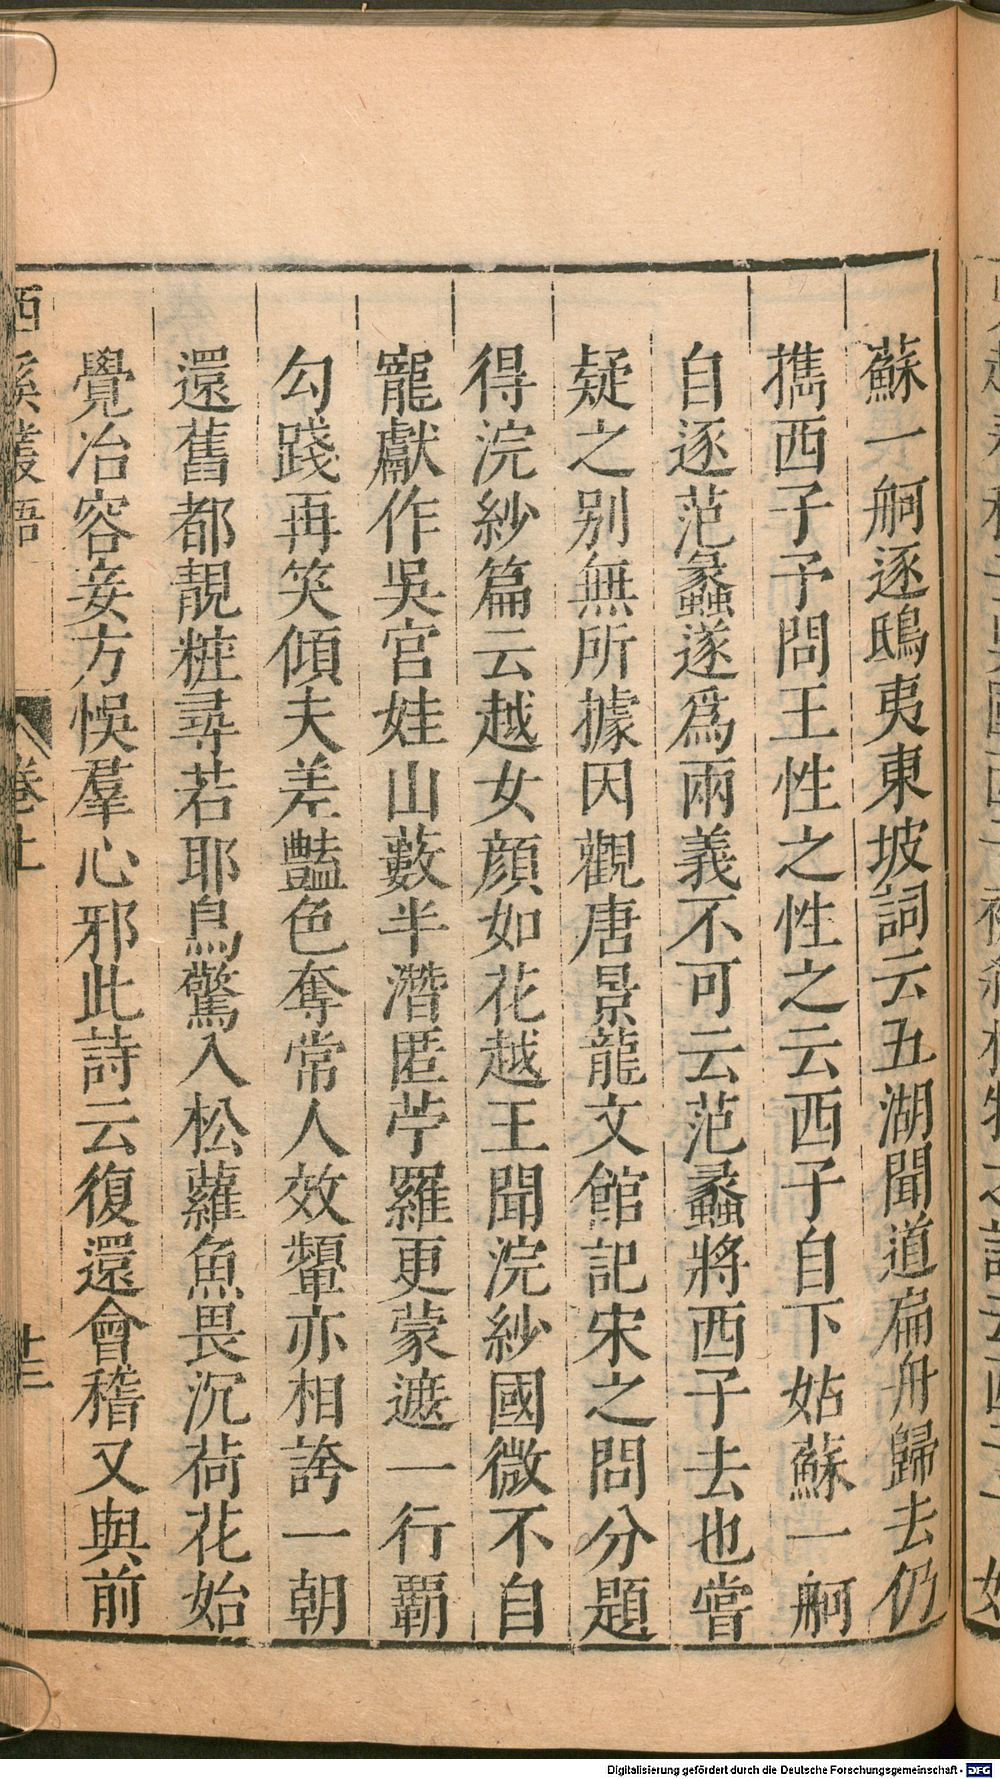 蘇一舸逐鴟夷東坡詞云五湖聞道扁舟歸去仍
攜西子予問王性之性之云西子自下姑蘇一舸
自逐范蠡遂爲兩義不可云范蠡將西子去也嘗
疑之别無所據因觀唐景龍文館記宋之問分題
得浣紗篇云越女顏如花越王聞浣紗國微不自
寵獻作吳宫娃山藪半潛匿苧羅更蒙遮一行覇
勾踐再笑傾夫差豔色奪常人效顰亦相誇一朝
還舊都靚粧尋若耶鳥驚入松蘿魚畏沉荷花始
覺冶容妄方悞羣心邪此詩云復還會稽又與前
西溪叢語
卷上
廿三
Digitalisierung gefördert durch die Deutsche Forschungsgemeinschaft - DFG